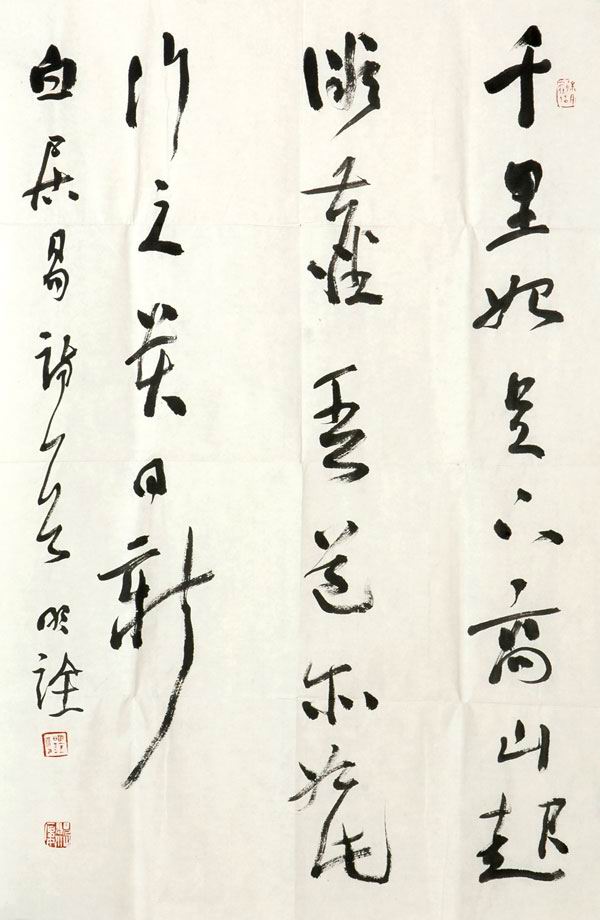 千里始足下高山起
微塵吾道亦如此
行之貴日新
白居易詩一首 明詮